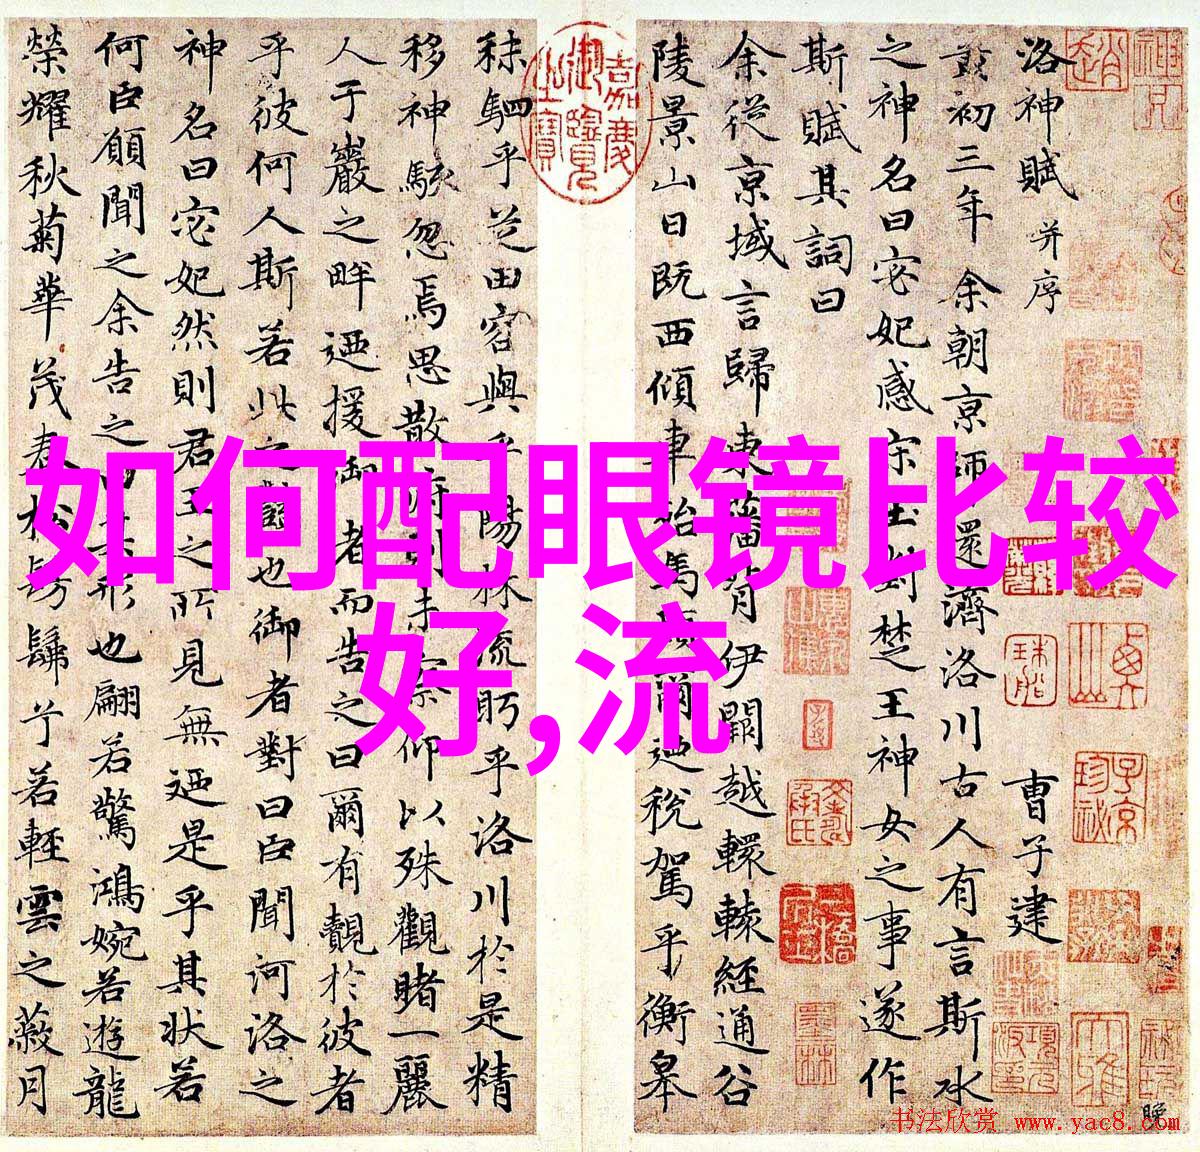 洛神賦 并序
曹子建
黃初三年余朝京師還濟洛川古人有言斯水
之神名曰宓妃感宋玉對楚王神女之事遂作
斯賦其詞曰
余從京域言歸東藩背伊闕越轘轅經通谷
陵景山日既西傾車殆馬煩爾迺稅駕乎衡皋
秣駟乎芝田容與乎陽林流眄乎洛川於是精
移神駭忽焉思散俯則未察仰以殊觀睹一麗
人于巖之畔迺援御者而告之曰爾有覿於彼者
乎彼何人斯若此之豔也御者對曰臣聞河洛之
神名曰宓妃然則君王之所見無迺是乎其狀若
何臣願聞之余告之曰其形也翩若驚鴻婉若遊龍
榮耀秋菊華茂春松髣髴兮若輕雲之蔽月
嘉慶御覽之寶
如何配眼镜比较
好,流
晚
书法欣赏 www.yac8.com